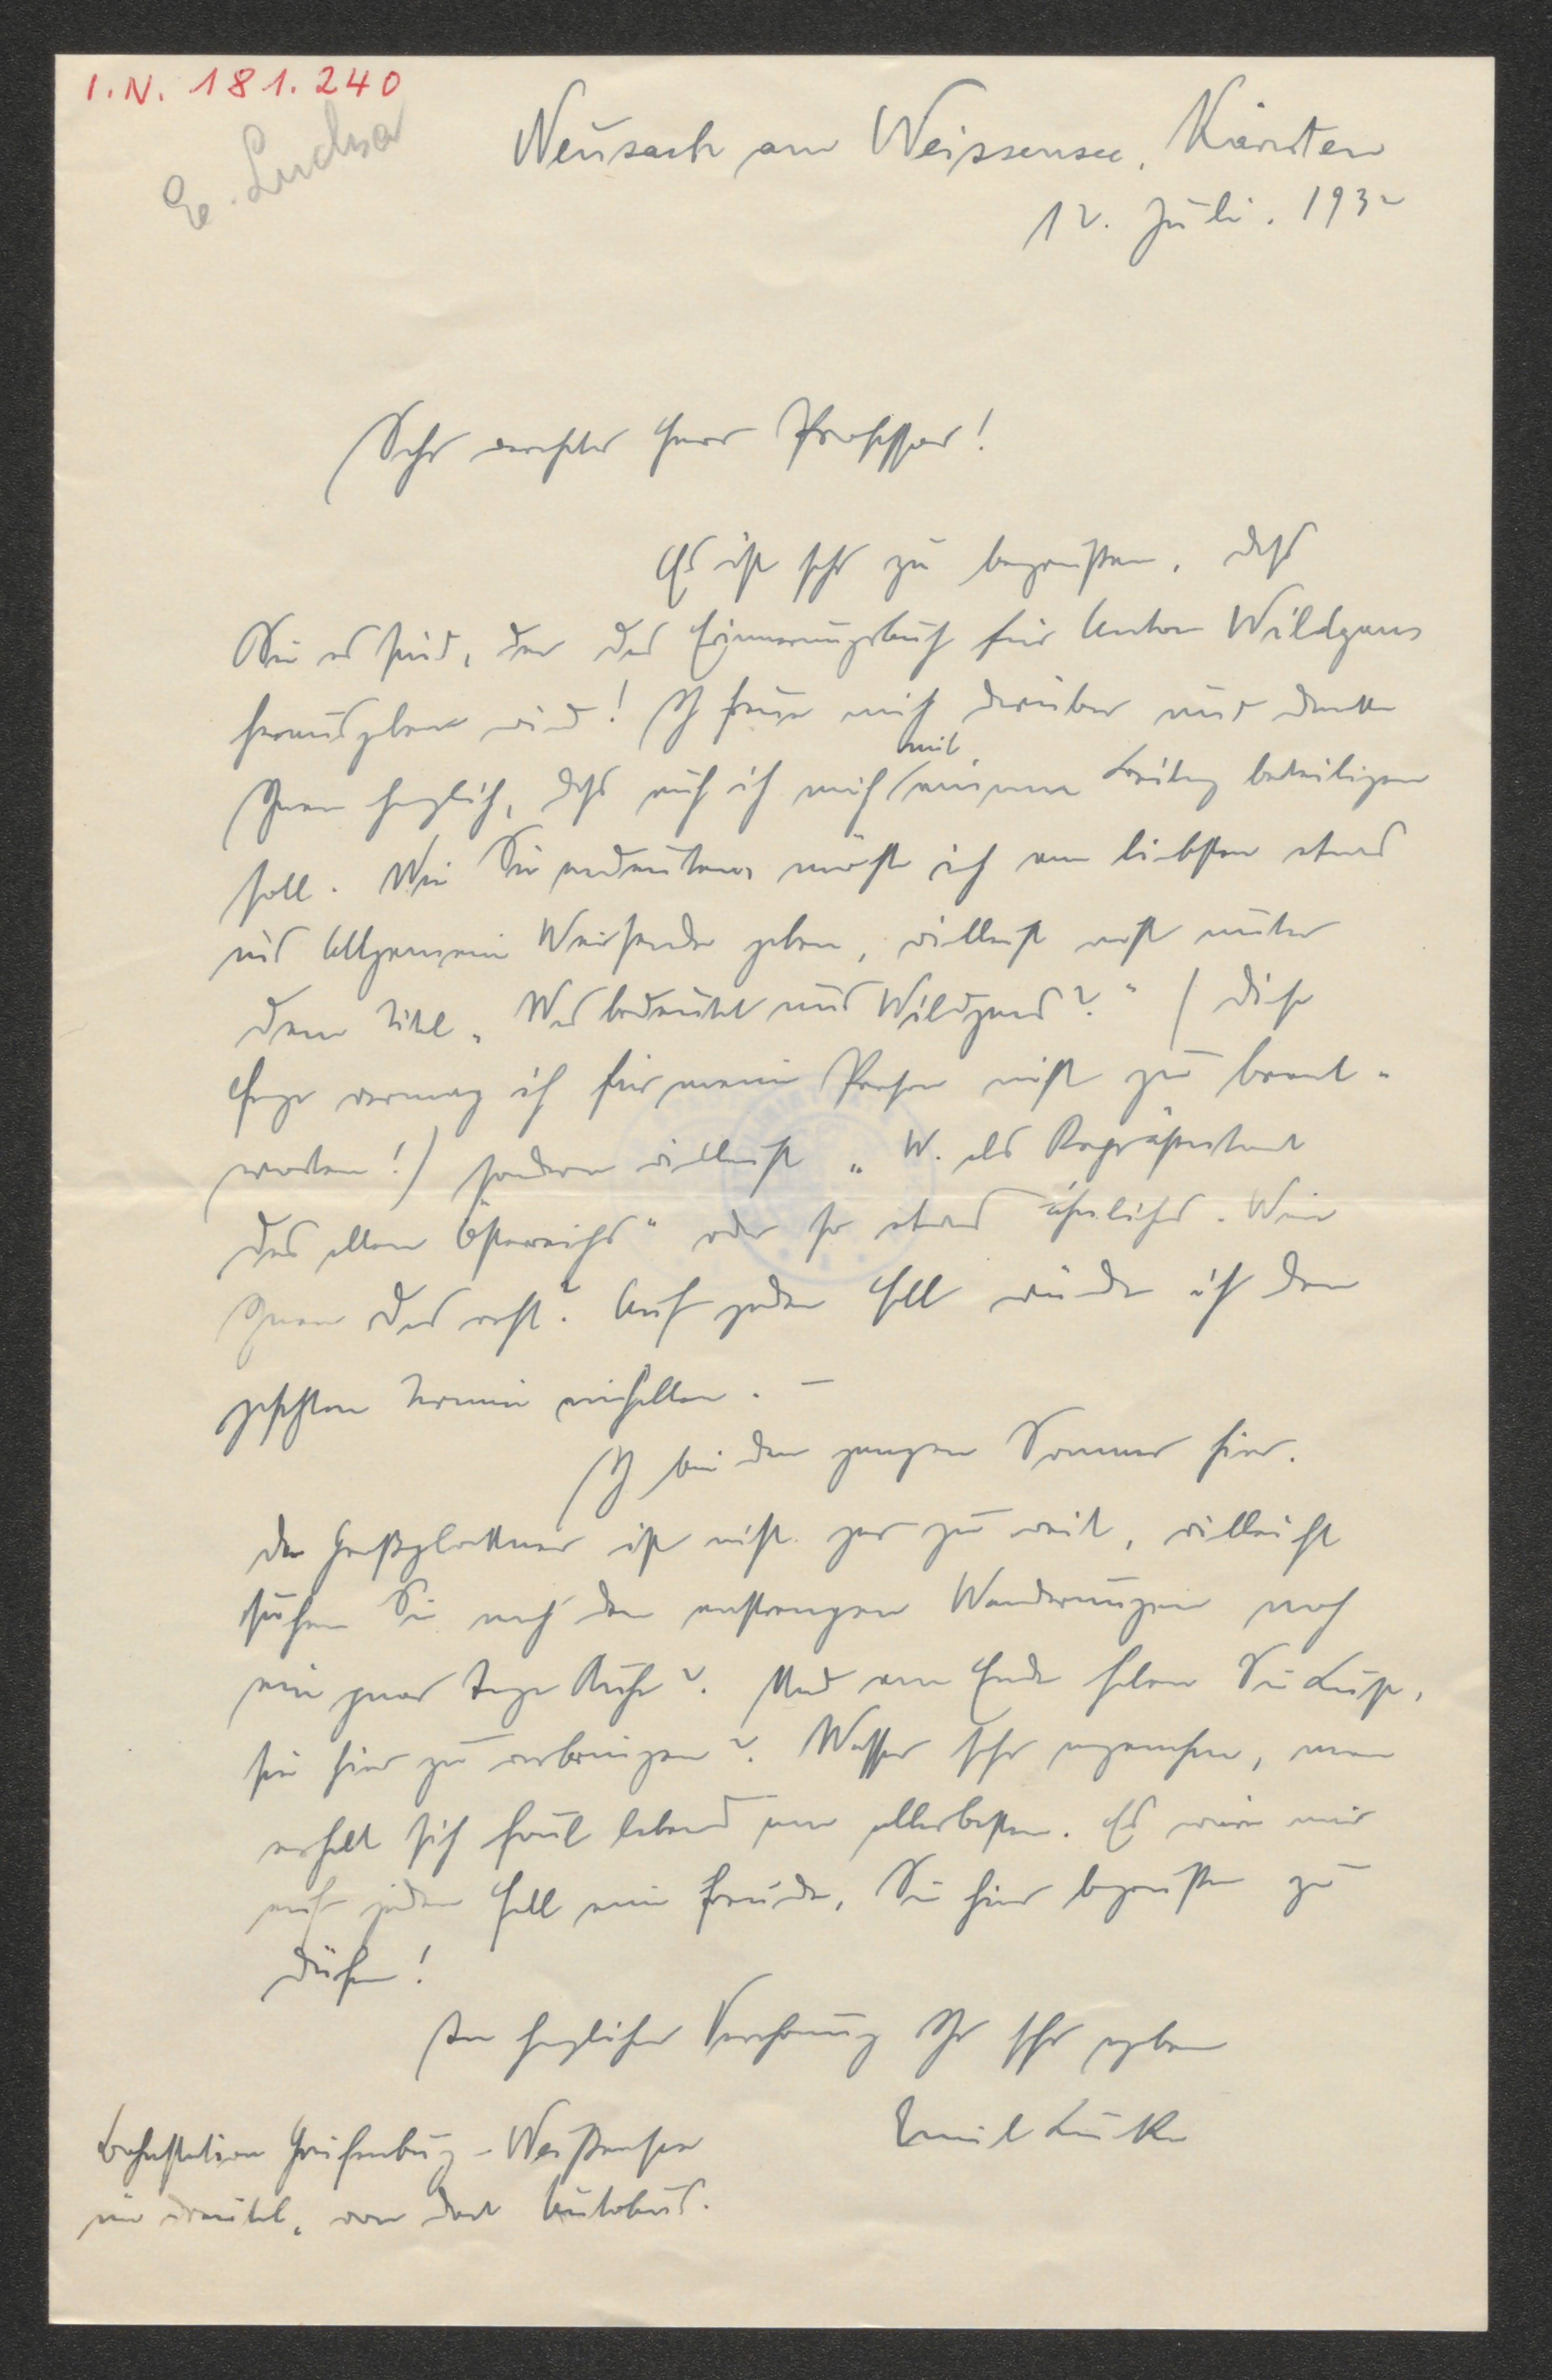 I.N. 181.240
E. Lucka
Neusach am Weissensee, Kärnten
12. Juli. 1932
Sehr verehrter Herr Professor!
Es ist sehr zu begrüßen, daß
Sie es sind, der das Erinnerungsbuch für Anton Wildgans
herausgeben wird! Ich freue mich darüber und danke
Ihnen herzlich, daß auch ich mich mit einem Beitrag beteiligen
soll. Wie Sie andeuten, möchte ich am liebsten etwas
ins Allgemeine Weisendes geben, vielleicht nicht unter
dem Titel „Was bedeutet uns Wildgans?" (Diese
Frage vermag ich für meine Person nicht zu beant-
worten!) sondern vielleicht „W. als Repräsentant
des alten Österreichs" oder so etwas ähnliches. Wäre
Ihnen das recht? Auf jeden Fall würde ich den
gesetzten Termin einhalten. –
Ich bin den ganzen Sommer hier.
Der Großglockner ist nicht gar zu weit, vielleicht
suchen Sie nach den anstrengenden Wanderungen noch
ein paar Tage Ruhe? Und am Ende haben Sie Lust,
sie hier zu verbringen? Wasser sehr angenehm, man
erholt sich faul lebend am allerbesten. Es wäre mir
auf jeden Fall eine Freude, Sie hier begrüßen zu
dürfen!
In herzlicher Verehrung Ihr sehr ergebener
Emil Lucka
Bahnstation Greifenburg-Weißensee
im Drautal, von dort Autobus.